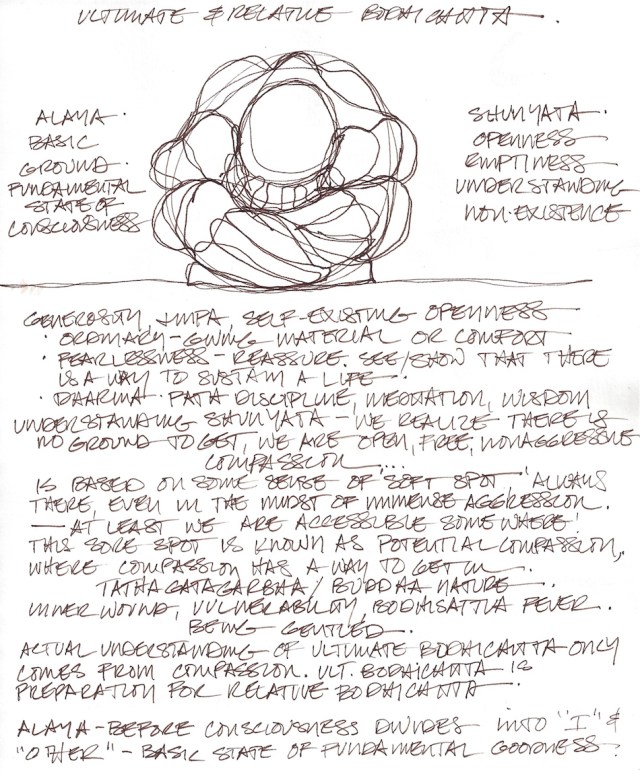 ULTIMATE & RELATIVE BODHICHITTA.
ALAYA.
BASIC
GROUND.
FUNDAMENTAL
STATE OF
CONSCIOUSNESS
SHUNYATA.
OPENNESS
EMPTINESS
UNDERSTANDING
NON-EXISTENCE
GENEROSITY, JINPA, SELF-EXISTING OPENNESS
· ORDINARY - GIVING MATERIAL OR COMFORT
· FEARLESSNESS - REASSURE. SEE/SHOW THAT THERE
IS A WAY TO SUSTAIN A LIFE.
· DHARMA. PATH DISCIPLINE, MEDITATION, WISDOM
UNDERSTANDING SHUNYATA - WE REALIZE THERE IS
NO GROUND TO GET, WE ARE OPEN, FREE, NONAGGRESSIVE
COMPASSION....
IS BASED ON SOME SENSE OF SOFT SPOT, 'ALWAYS
THERE, EVEN IN THE MIDST OF IMMENSE AGGRESSION.
— AT LEAST WE ARE ACCESSIBLE SOMEWHERE!
THIS SORE SPOT IS KNOWN AS POTENTIAL COMPASSION,
WHERE COMPASSION HAS A WAY TO GET IN.
TATHAGATAGARBHA / BUDDHA NATURE.
INNER WOUND, VULNERABILITY, BODHISATTVA FEVER.
BEING GENTLED.
ACTUAL UNDERSTANDING OF ULTIMATE BODHICHITTA ONLY
COMES FROM COMPASSION. ULT. BODHICHITTA IS
PREPARATION FOR RELATIVE BODHICHITTA.
ALAYA - BEFORE CONSCIOUSNESS DIVIDES INTO "I" &
"OTHER" - BASIC STATE OF FUNDAMENTAL GOODNESS?